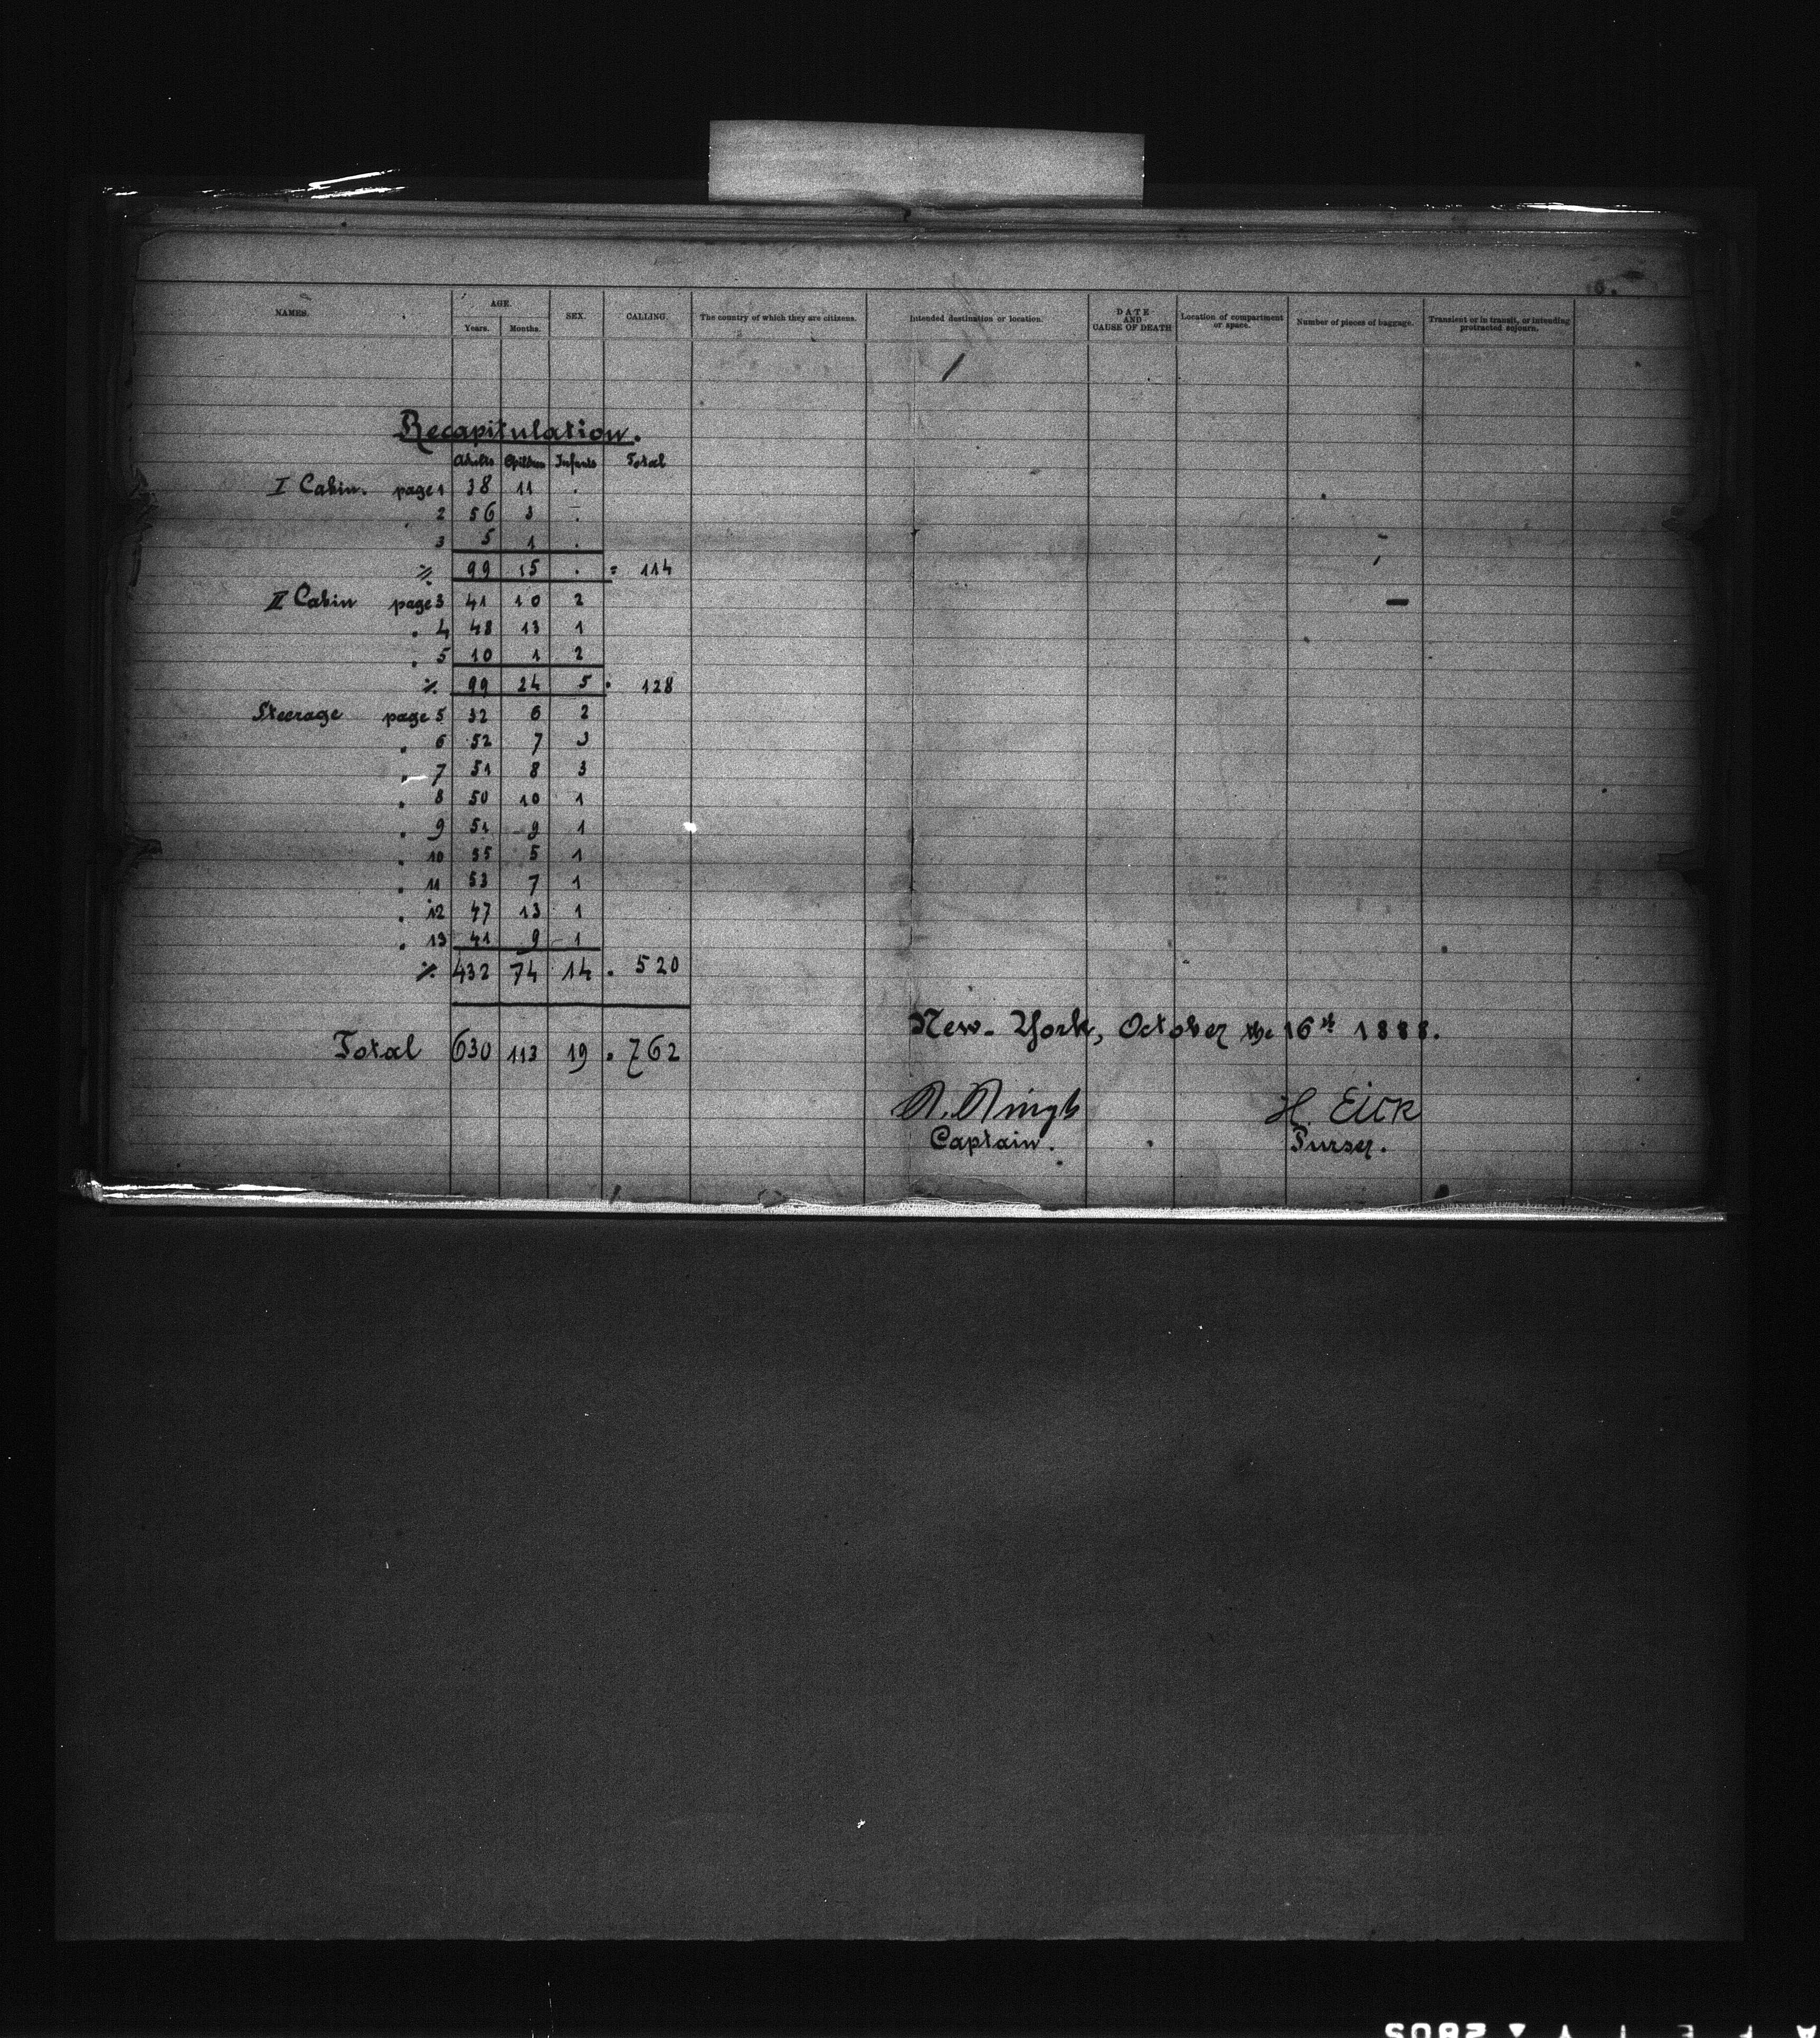 NAMES. AGE. SEX. CALLING. The country of which they are citizens. Intended destination or location. DATE AND CAUSE OF DEATH Location of compartment or space. Number of pieces of baggage. Transient or in transit, or intending protracted sojourn.
Years. Months.
Recapitulation.
Adults Infants Total
I Cabin. page 1 38 11 .
2 56 3 .
3 5 1 .
99 15 . = 114
II Cabin page 3 41 10 2
" 4 48 13 1
" 5 10 1 2
99 24 5 " 128
Steerage page 5 32 6 2
" 6 52 7 3
" 7 51 8 3
" 8 50 10 1
" 9 51 9 1
" 10 55 5 1
" 11 53 7 1
" 12 47 13 1
" 13 41 9 1
432 74 14 " 520
Total 630 113 19 " 762
New-York, October the 16th 1888.
H. Eick
Captain. Purser.